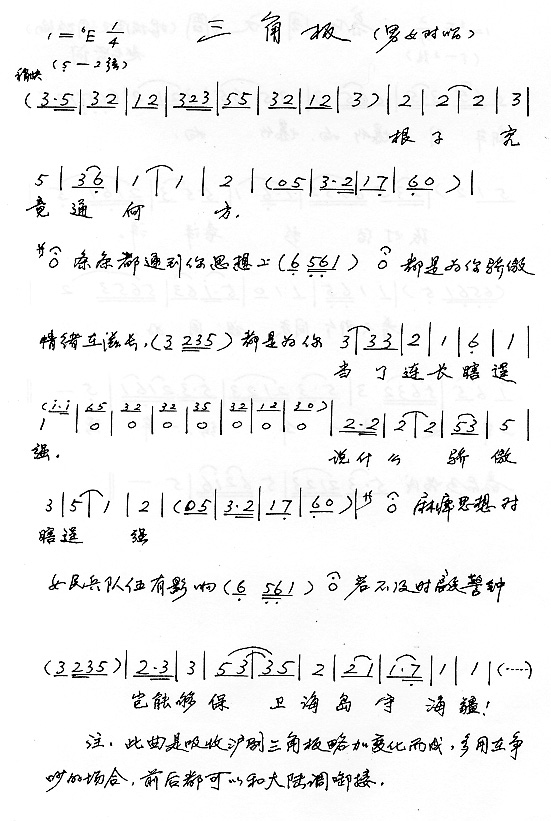 1=ᵇE 1/4 三角板（男女对唱）
(5—2弦)
稍快
(3·5|32|12|323|55|32|12|3)|2|2 2|3|
根子究
5|36|1|1|2|(05|3·2|17|60)|
竟通何方.
サ0 条条都通到你思想上(6 561) 0 都是为你骄傲
情绪在滋长,(3 235)都是为你 3|33|2|1|6|1|
当了连长瞎逞
(i·i|65|32|32|35|32|12|30)|
1|0|0|0|0|0|0|0|2·2|2 2|53|5|
强. 说什么骄傲
3|5|1|2|(05|3·2|17|60)|サ 0 麻痹思想对
瞎逞强
女民兵队伍有影响(6 561) 0 若不及时敲警钟
(3235)|2·3|3|53|35|2|21|1·7|1|1|(……)
岂能够保卫海岛守海疆!
注. 此曲是吸收沪剧三角板略加变化而成,多用在争
吵的场合,前后都可以和大陆调衔接.